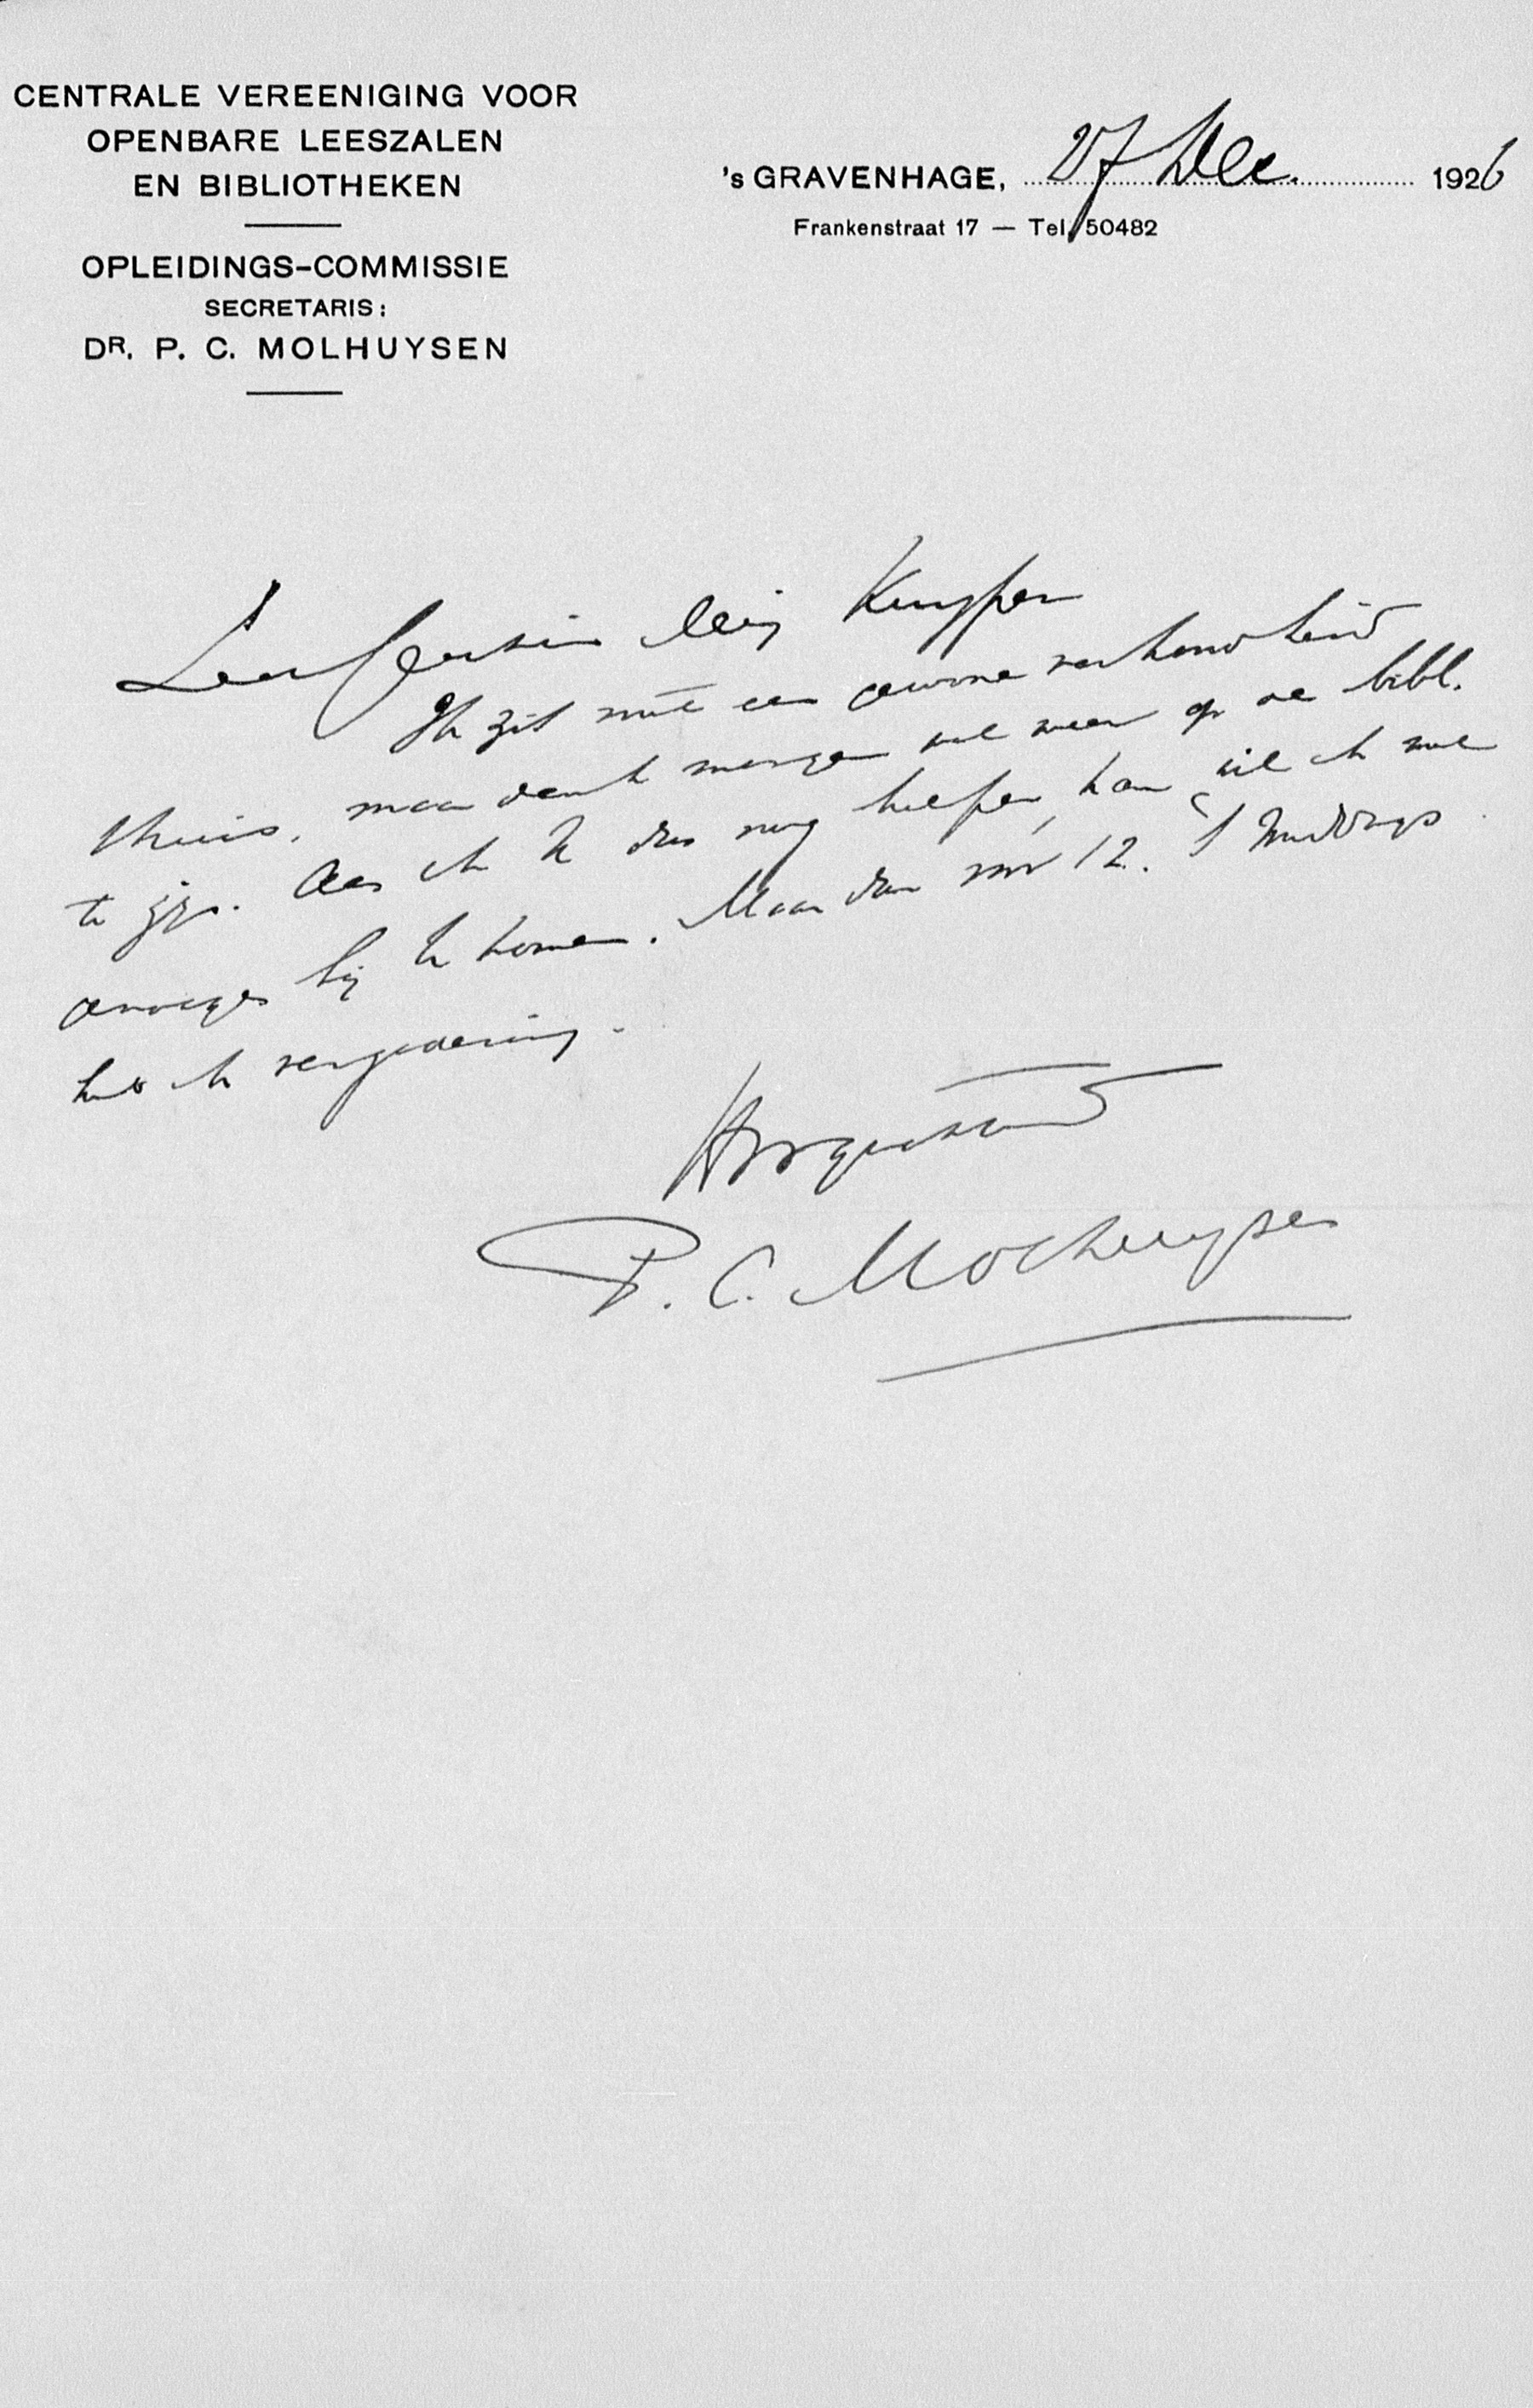 CENTRALE VEREENIGING VOOR
OPENBARE LEESZALEN
EN BIBLIOTHEKEN
OPLEIDINGS-COMMISSIE
SECRETARIS:
DR. P. C. MOLHUYSEN
's GRAVENHAGE, 27 Dec. 1926
Frankenstraat 17 — Tel. 50482
Zeer Kuyper
Ik zit met een gewone verkoudheid
thuis, maar denk morgen wel weer op de bibl.
te zijn. Als ik U dus nog helpen kan, wil ik wel
bij U komen. Maar dan vóór 12. 's Middags
heb ik vergadering.
Hoogachtend
P. C. Molhuysen